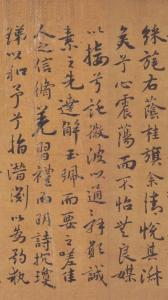 綵旄右蔭桂旗余情悅其淑
美兮心震蕩而不怡無良媒
以接懽兮託微波以通辭願誠
素之先達解玉珮而要之嗟佳
人之信脩羌習禮而明詩抗瓊
珶以和予兮指潛淵以為期執